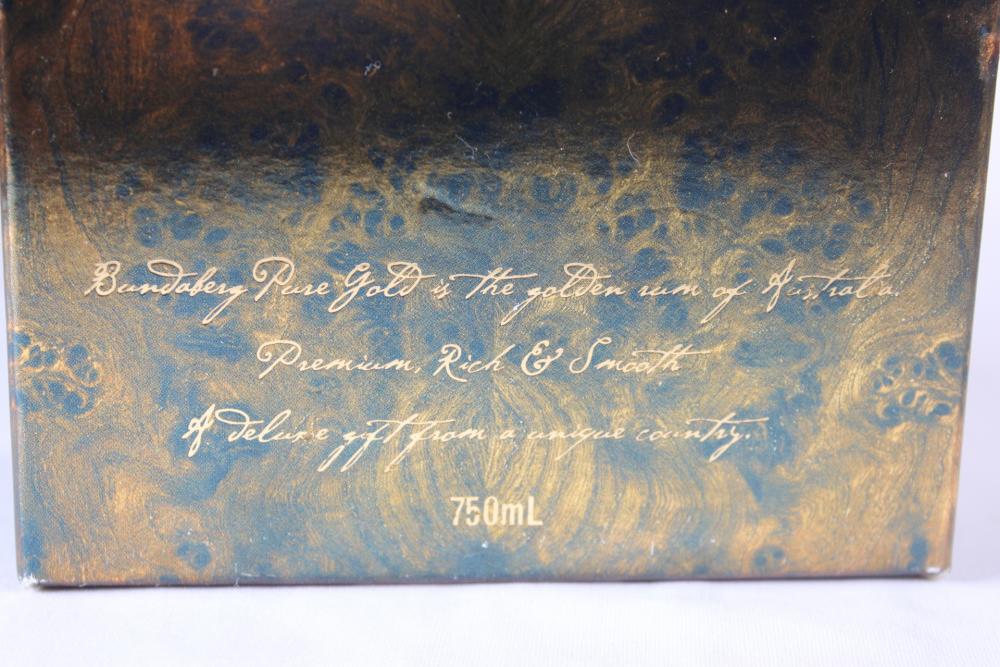 Bundaberg Pure Gold is the golden rum of Australia.
Premium, Rich & Smooth
A deluxe gift from a unique country.
750mL